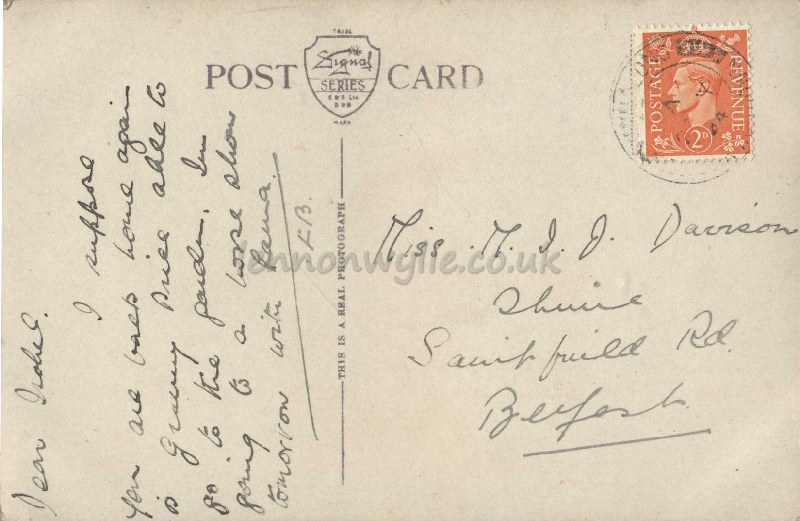 POST CARD
TRADE
Signal
SERIES
E & S Ltd
DUB
MARK
POSTAGE REVENUE
2D
THIS IS A REAL PHOTOGRAPH
Dear Isobel.
I suppose
you are back home again
is Granny Price able to
go to the garden. Im
going to a horse show
tomorrow with Rema.
EB.
Miss M. I. J. Davison
Saintfield Rd.
Belfast.
jennonwylie.co.uk